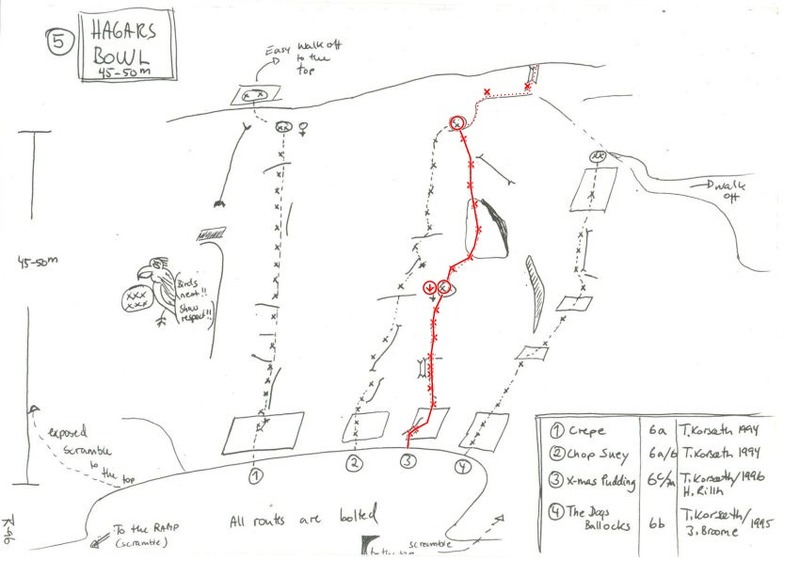 5
HAGARS
BOWL
45-50m
Easy walk off
to the
top
walk
off
45-50m
Birds
nest!!
Show
respect!!
XXX
exposed
scramble
to the
top
1
2
3
4
1 Crepe 6a T.Korseth 1994
2 Chop Suey 6a/b T.Korseth 1994
3 X-mas Pudding T.Korseth/1996
H. Rillh
4 The Dogs
Bollocks 6b T.Korseth/1995
J. Broome
To the RAMP
(scramble)
All routes are bolted
scramble